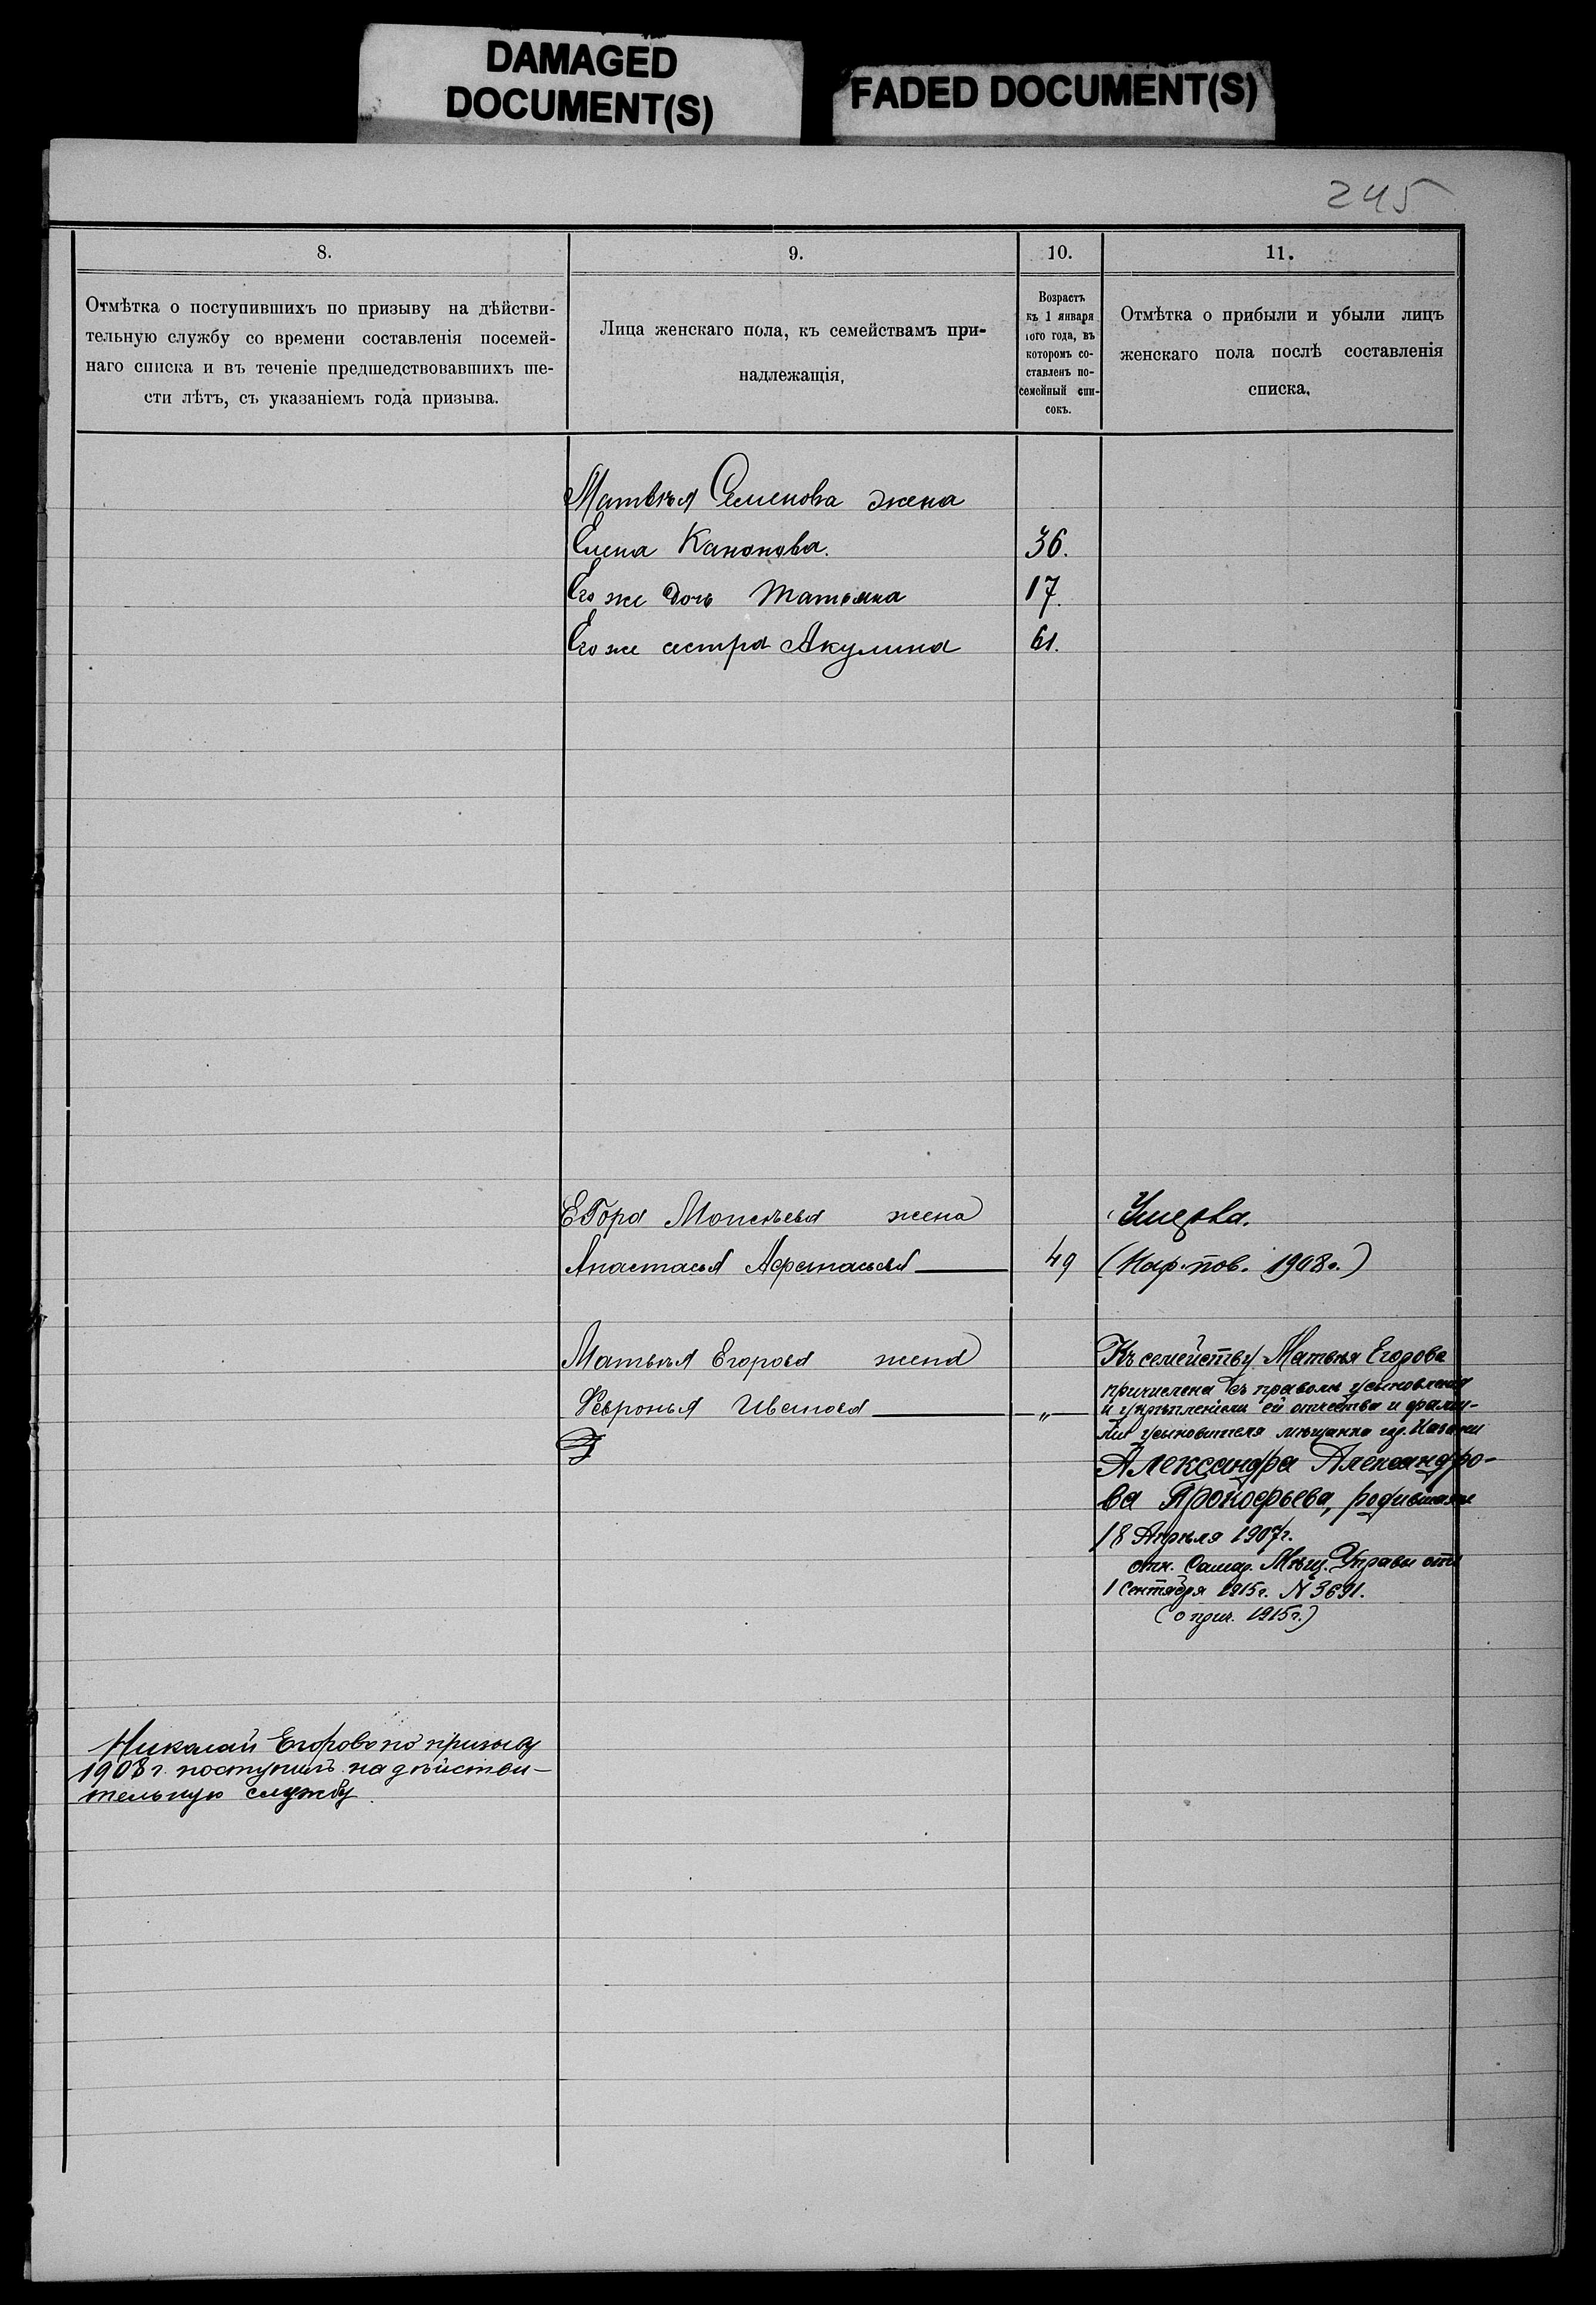 DAMAGED
DOCUMENT(S)
FADED DOCUMENT(S)
245
8.
9.
10.
11.
Отмѣтка о поступившихъ по призыву на дѣйстви-
тельную службу со времени составленія посемей-
наго списка и въ теченіе предшедствовавшихъ ше-
сти лѣтъ, съ указаніемъ года призыва.
Лица женскаго пола, къ семействамъ при-
надлежащія,
Возрастъ
къ 1 января
того года, въ
которомъ со-
ставленъ по-
семейный спи-
сокъ.
Отмѣтка о прибыли и убыли лицъ
женскаго пола послѣ составленія
списка,
Матвѣя Семенова жена
Елена Канонова. 36.
Его же дочь Татьяна 17.
Его же сестра Акулина 61.
Егора Моисѣева жена
Анастасья Афанасьева 49
Умерла.
(Нар. пов. 1908 г.)
Матвѣя Егорова жена
Февронья Иванова "
Къ семейству Матвѣя Егорова
причислена съ правомъ усыновленія
и укрѣпленіемъ ей отчества и фами-
ліи усыновителя мѣщанка гор.
Александра Александро-
ва Прокофьева, родившаяся
18 Апрѣля 1907 г.
отн. Самар. Мѣщ. Управы отъ
1 Сентября 1915 г. N 3691.
(о прич. 1915 г.)
Николай Егоровъ по призыву
1908 г. поступилъ на дѣйстви-
тельную службу.